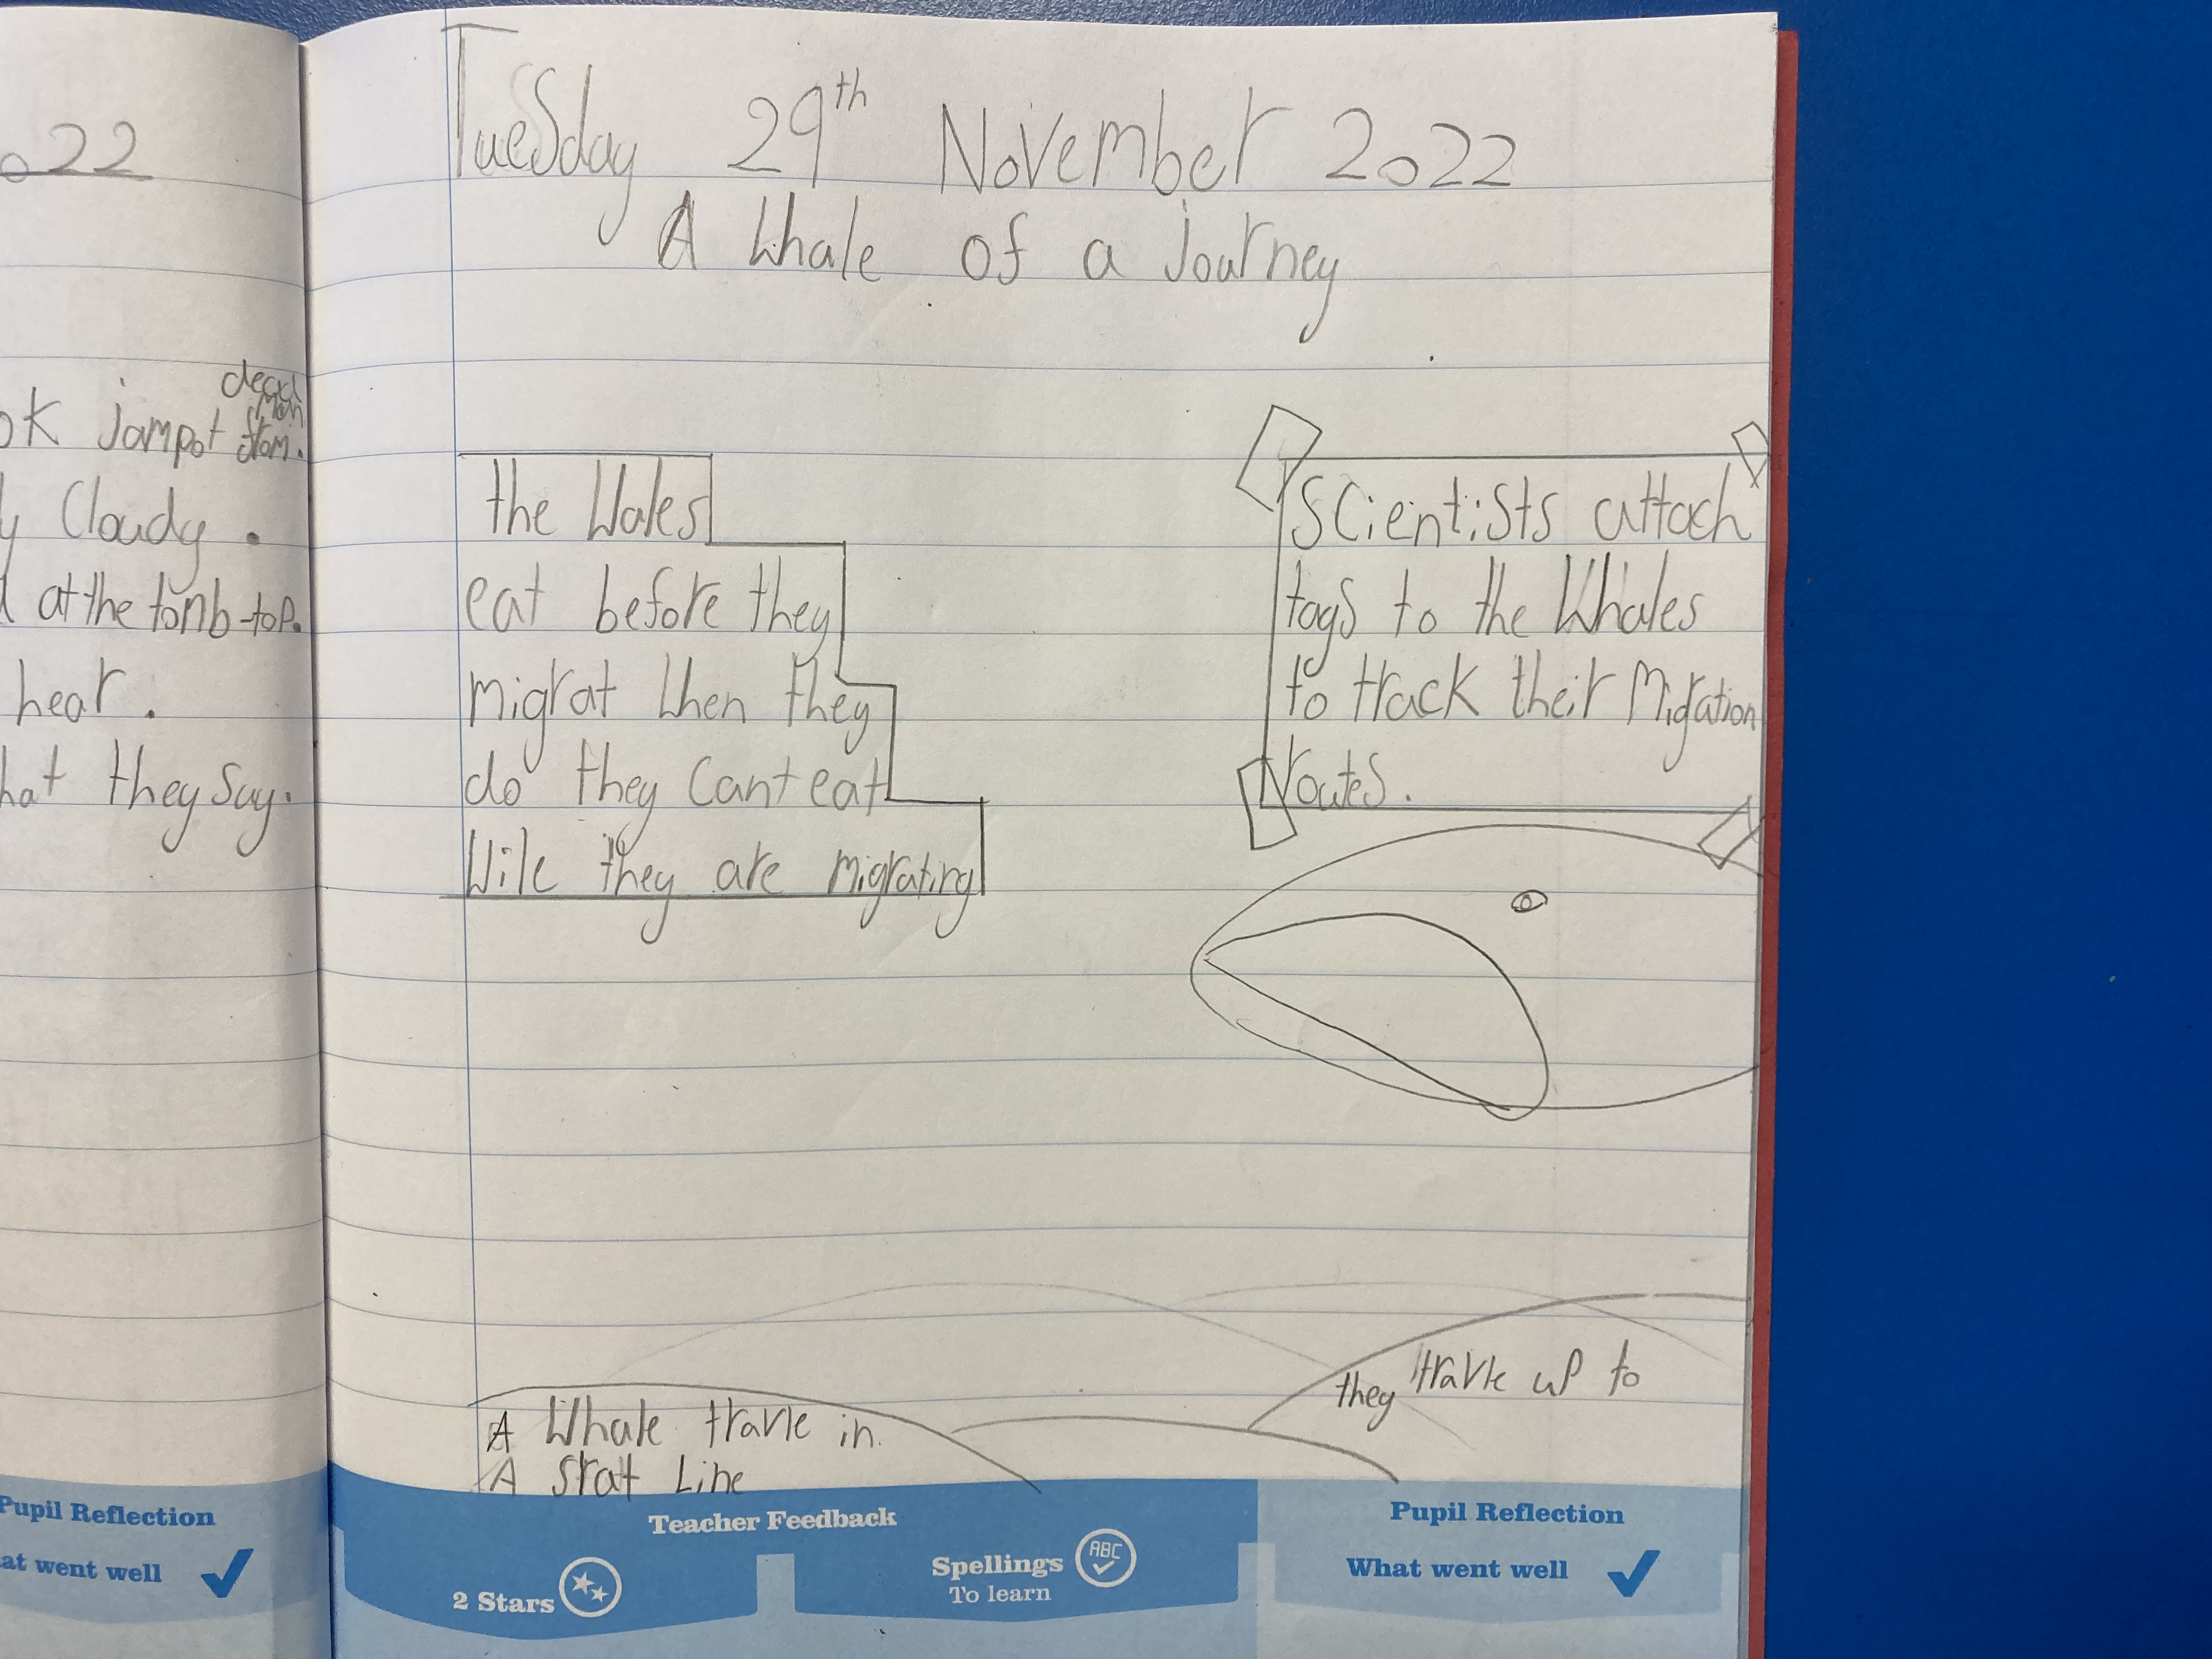 022
ok jampot
dead
man
from.
y Cloudy.
at the tomb-top.
hear.
hat they say.
Pupil Reflection
at went well
Tuesday 29th November 2022
A Whale of a journey
the Wales
eat before they
migrat when they
do they cant eat
Wile they are migrating
Scientists attach
tags to the Whales
to track their Migration
routes.
A Whale travle in
A strat Line
they travle up to
Teacher Feedback
2 Stars
Spellings
To learn
ABC
Pupil Reflection
What went well